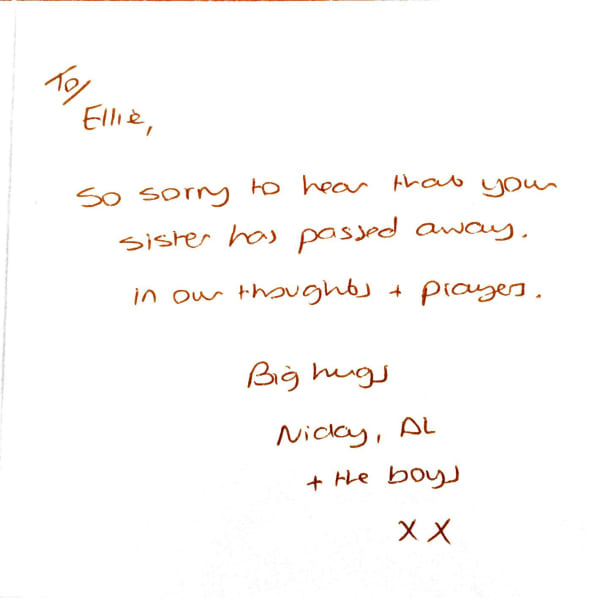 To/
Ellie,
So sorry to hear that your
sister has passed away.
in our thoughts + prayers.
Big hugs
Nicky, AL
+ the boys
x x